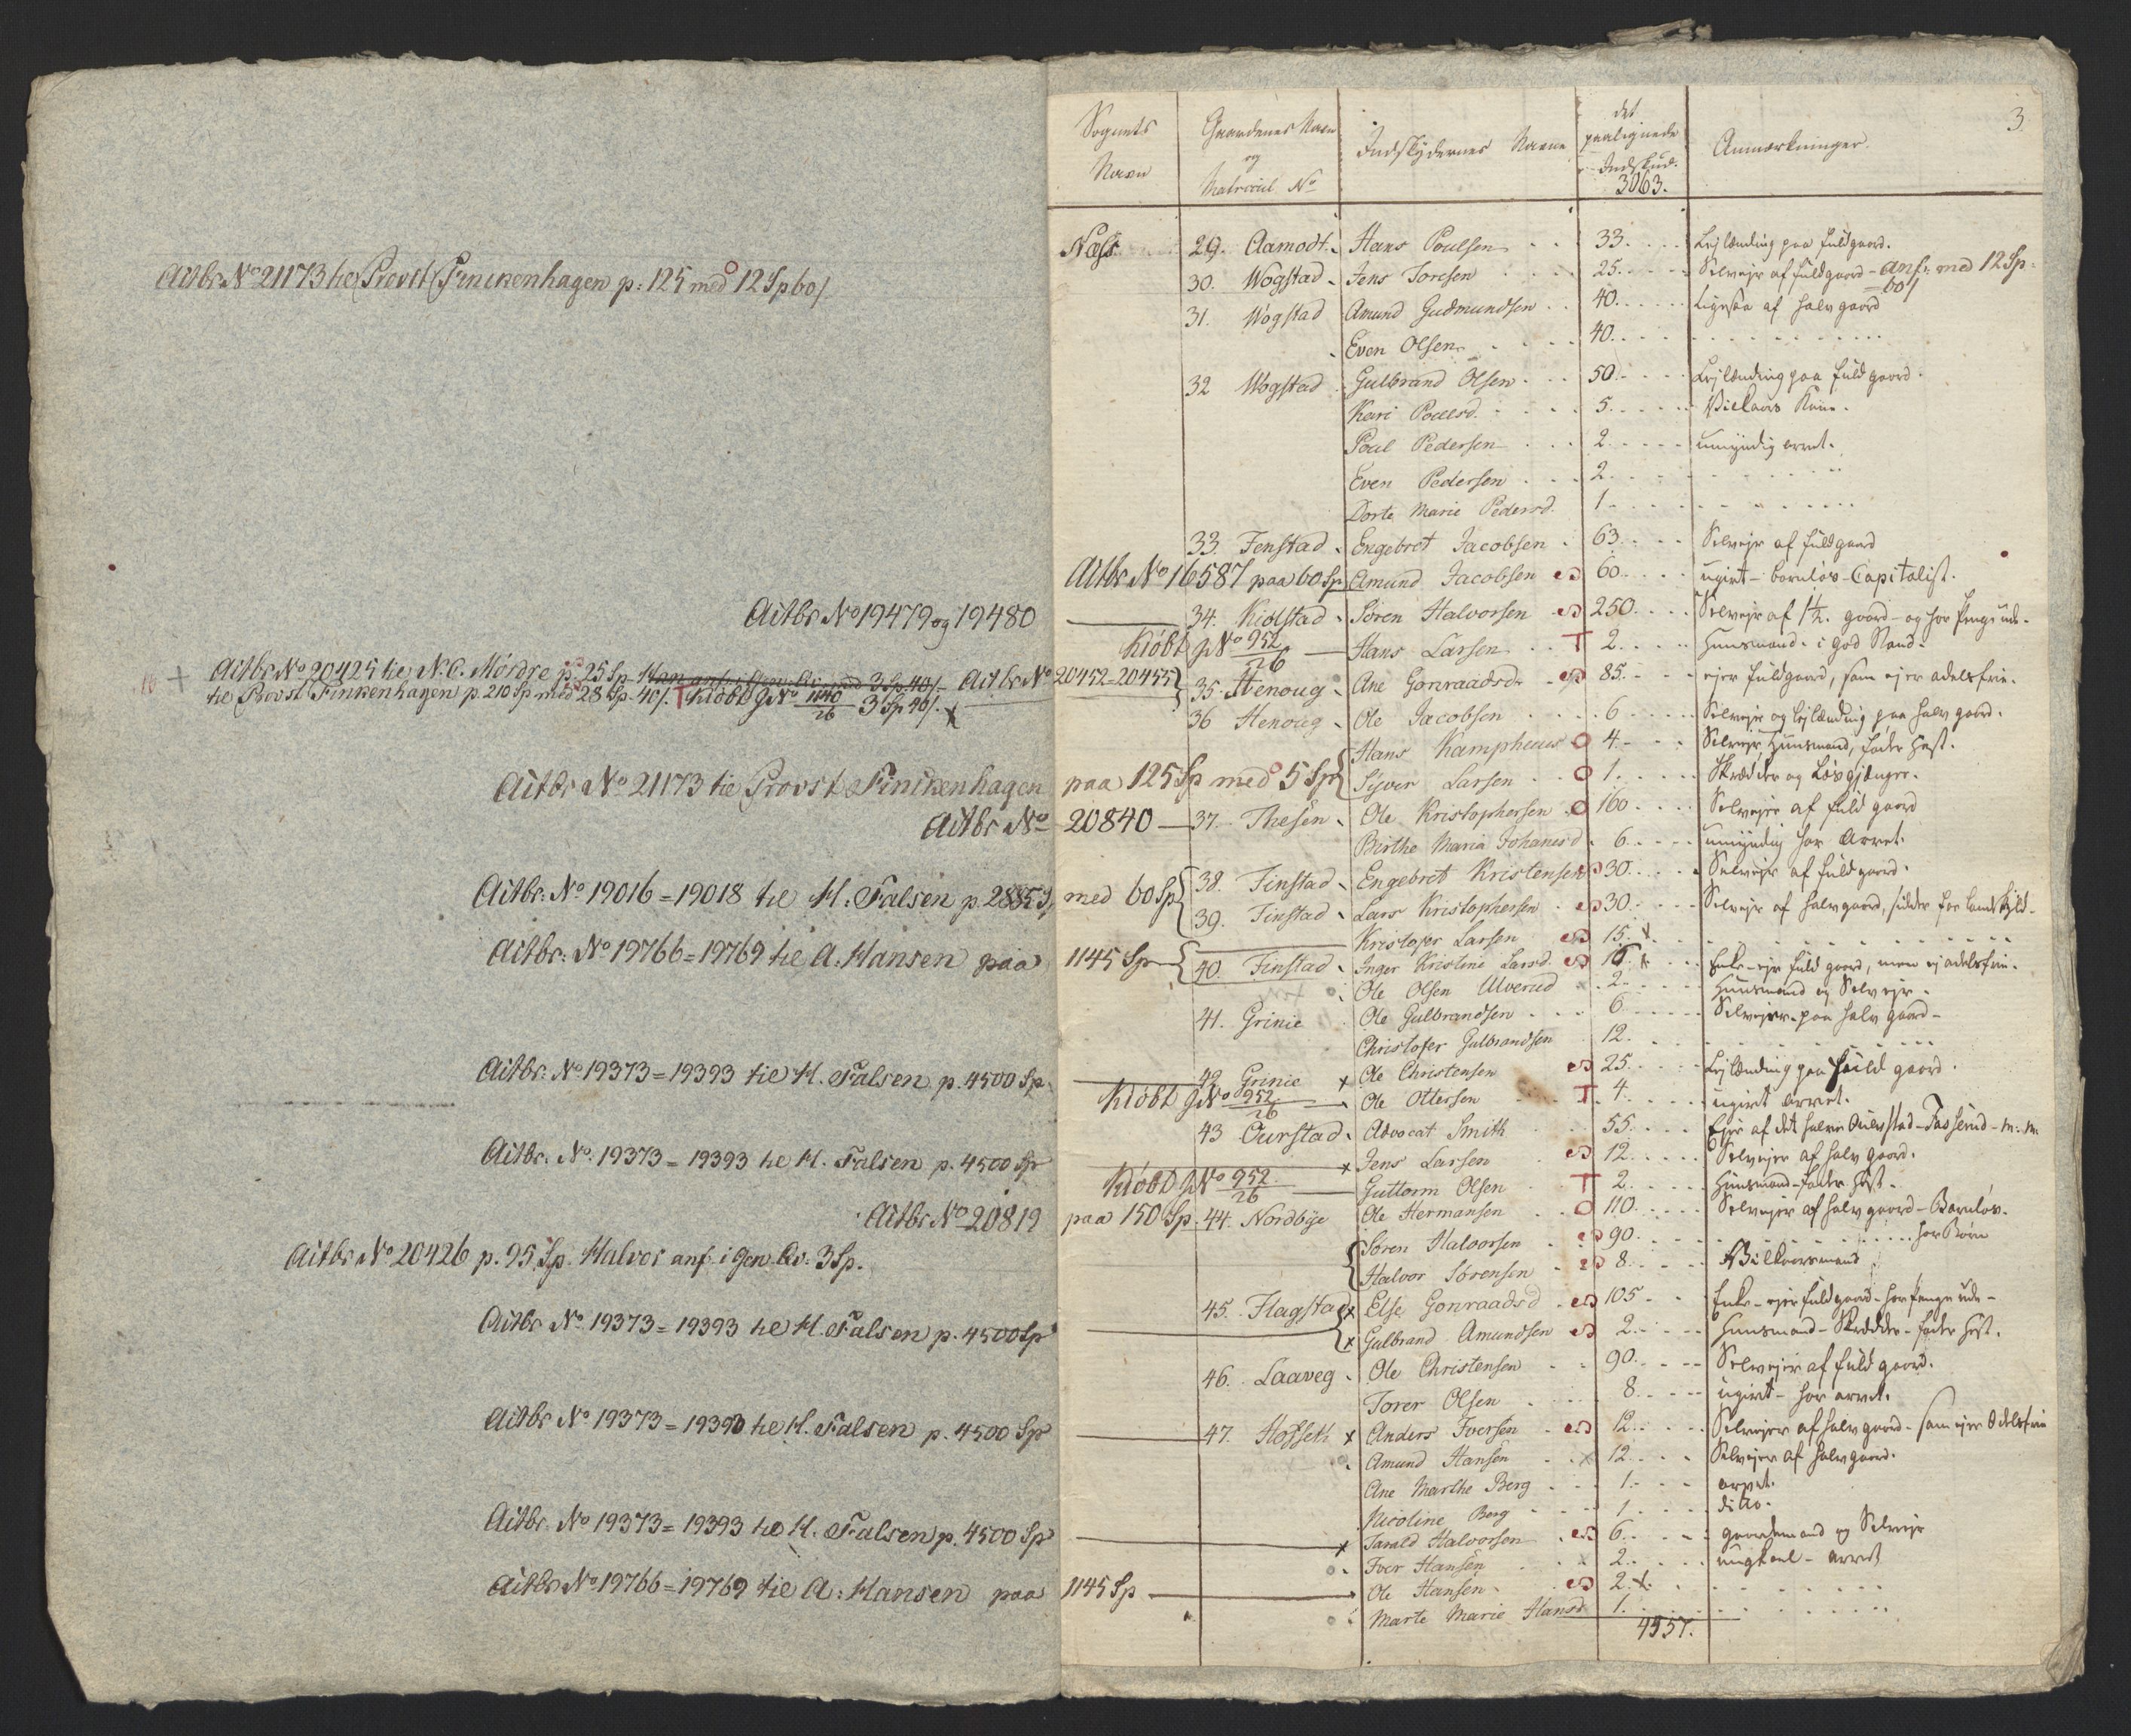 Actbr No 21173 til Provst Finckenhagen p: 125 med 12 Sp 60 /
Actbr No 19479 og 19480
Actbr No 20425 til N. C. Mördre p 25 Sp Actbr No
til Provst Finkenhagen p. 210 Sp med 28 Sp 40 /. T Kiöbt g No 1140/26 3 Sp 40 /.
Actbr No 21173 til Provst Finckenhagen
Actbr No
Actbr: No 19016 = 19018 til H: Falsen p. 2885 Sp
Actbr: No 19766 = 19769 til A: Hansen paa
Actbr: No 19373 = 19393 til H. Falsen p. 4500 Sp
Actbr: No 19373 = 19393 til H. Falsen p. 4500 Sp
Actbr No 20819
Actbr No 20426 p. 95 Sp. Halvor anf. i Gen. Qv: 3 Sp.
Actbr No 19373 = 19393 til H. Falsen p. 4500 Sp
Actbr No 19373 = 19393 til H. Falsen p. 4500 Sp
Actbr No 19373 = 19393 til H. Falsen p. 4500 Sp
Actbr No 19766 = 19769 til A: Hansen paa
3
Sognets Navn
Gaardenes Navn og Matricul No
Indskydernes Navne
det paalignede Indskud.
3063.
Anmærkninger.
Næss 29. Aamodt. Hans Poulsen 33. Lejlænding paa fuldgaard.
30. Wogstad Jens Toresen 25. Selvejer af fuldgaard - anf: med 12 Sp 60 /
31. Wogstad Amund Gudmundsen 40. Ligesaa af halv gaard
Even Olsen 40.
32 Wogstad Gulbrand Olsen 50. Lejlænding paa fuld gaard.
Kari Poulsd. 5. Vilkaars Kone.
Poul Pedersen 2. umyndig arvet.
Even Pedersen 2.
Dorte Marie Pedersd. 1.
33. Fenstad Engebret Jacobsen 63. Selvejer af fuldgaard
Actbr No 16587 paa 60 Sp Amund Jacobsen 60. ugivt - barnløs - Capitalist.
34. Kiölstad Sören Halvorsen 250. Selvejer af 1½ gaard - og har Penge ude.
Kiöbt g No 952/26 Hans Larsen T 2. Huusmand i god Stand.
20452 = 20455 35. Henoug Ane Gonraadsd. 85. ejer fuldgaard, som ejer adelsfrie.
36 Henoug Ole Jacobsen 6. Selvejer og lejlænding paa halv gaard.
Hans Kamphuus 4. Selvejer Huusmand, föder Hest.
paa 125 Sp med 5 Sp Syver Larsen 1. Skrædder og Lösgjænger.
20840 37. Thesen Ole Kristophersen 160 Selvejer af fuld gaard
Birthe Maria Johanesd. 6. umyndig har Arvet.
med 60 Sp 38. Finstad Engebret Kristensen 30. Selvejer af fuldgaard.
39. Finstad Lars Kristophersen 30. Selvejer af halvgaard, sidder for Landskyld
Kristofer Larsen 15.
1145 Sp 40. Finstad Inger Kristine Larsd. Enke - ejer fuld gaard, men ej adelsfrie.
Ole Olsen Ulverud 2. Huusmand og Selvejer.
41. Grinie Ole Gulbrandsen 6 Selvejer paa halv gaard
Christofer Gulbrandsen 12.
42. Grinie Ole Christensen 25. Lejlænding paa fuld gaard.
Kiöbt g No 952/26 Ole Ottersen T 4. ugivt arvet.
43 Ourstad Advocat Smith 55. Ejer af det halve Ouerstad - Tasserud - m: m:
Jens Larsen 12. Selvejer af halv gaard.
Kiöbt g No 952/26 Guttorm Olsen T 2. Huusmand - föder Hest.
paa 150 Sp. 44. Nordbye Ole Hermansen 110. Selvejer af halv gaard - Barnlös.
Sören Halvorsen 90. har Börn
Halvor Sörensen 8. Vilkaarsmand
45. Flagstad Else Gonraadsd. 105 Enke - ejer fuldgaard - har Penge ude -
Gulbrand Amundsen 2. Huusmand - Skrædder - föder Hest.
46. Laaveg Ole Christensen 90. Selvejer af fuld gaard.
Torer Olsen 8. ugivt - har arvet.
47. Hofseth Anders Iversen 12. Selvejer af halv gaard - som ejer Odelsfrie
Amund Hansen 12. Selvejer af halvgaard.
Ane Marthe Berg 1. arvet.
Nicoline Berg 1. dito.
Tarald Halvorsen 6. gaardemand og Selvejer
Iver Hansen 2. ungkarl - arvet
1145 Sp Ole Hansen 2.
Marte Marie Hansd. 1.
4557.